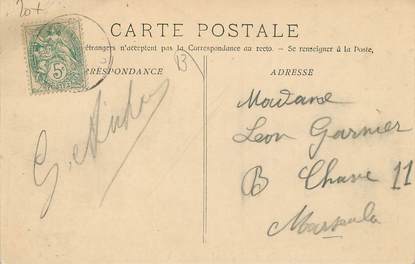 CARTE POSTALE
étrangers n'acceptent pas la Correspondance au recto. - Se renseigner à la Poste,
RRESPONDANCE
ADRESSE
5c
B
Madame
Leon Garnier
B Chave 11
Marseille
G.